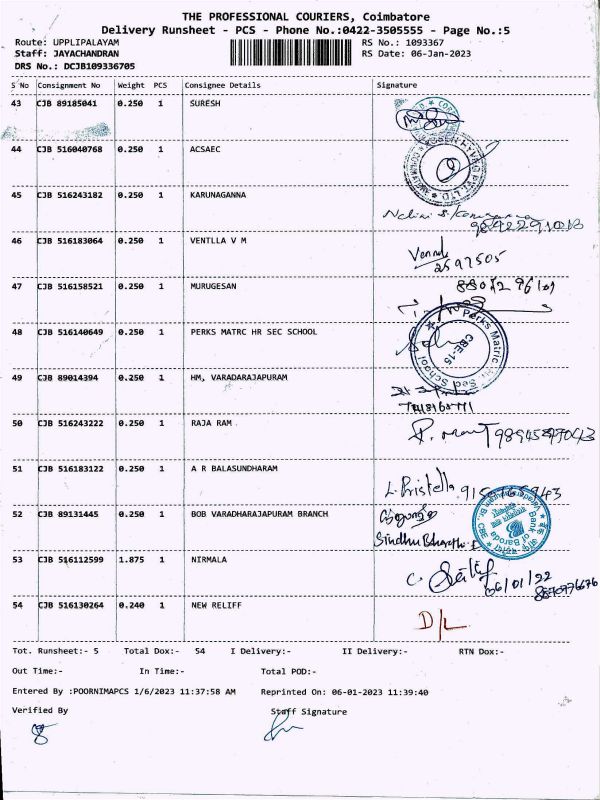 THE PROFESSIONAL COURIERS, Coimbatore
Delivery Runsheet - PCS - Phone No.:0422-3505555 - Page No.:5
Route: UPPLIPALAYAM RS No.: 1093367
Staff: JAYACHANDRAN RS Date: 06-Jan-2023
DRS No.: DCJB109336705
S No Consignment No Weight PCS Consignee Details Signature
43 CJB 89185041 0.250 1 SURESH
44 CJB 516040768 0.250 1 ACSAEC
45 CJB 516243182 0.250 1 KARUNAGANNA
9892291013
46 CJB 516183064 0.250 1 VENTLLA V M
2597505
47 CJB 516158521 0.250 1 MURUGESAN
48 CJB 516140649 0.250 1 PERKS MATRC HR SEC SCHOOL
Perks Matric Hr. Sec School
CBE-15
49 CJB 89014394 0.250 1 HM, VARADARAJAPURAM
50 CJB 516243222 0.250 1 RAJA RAM
51 CJB 516183122 0.250 1 A R BALASUNDHARAM
L. Pristella
52 CJB 89131445 0.250 1 BOB VARADHARAJAPURAM BRANCH
Bank of Baroda
Sindhu Bharathi
53 CJB 516112599 1.875 1 NIRMALA
C.
06/01/22
8870976676
54 CJB 516130264 0.240 1 NEW RELIFF D/L
Tot. Runsheet:- 5 Total Dox:- 54 I Delivery:- II Delivery:- RTN Dox:-
Out Time:- In Time:- Total POD:-
Entered By :POORNIMAPCS 1/6/2023 11:37:58 AM Reprinted On: 06-01-2023 11:39:40
Verified By Staff Signature